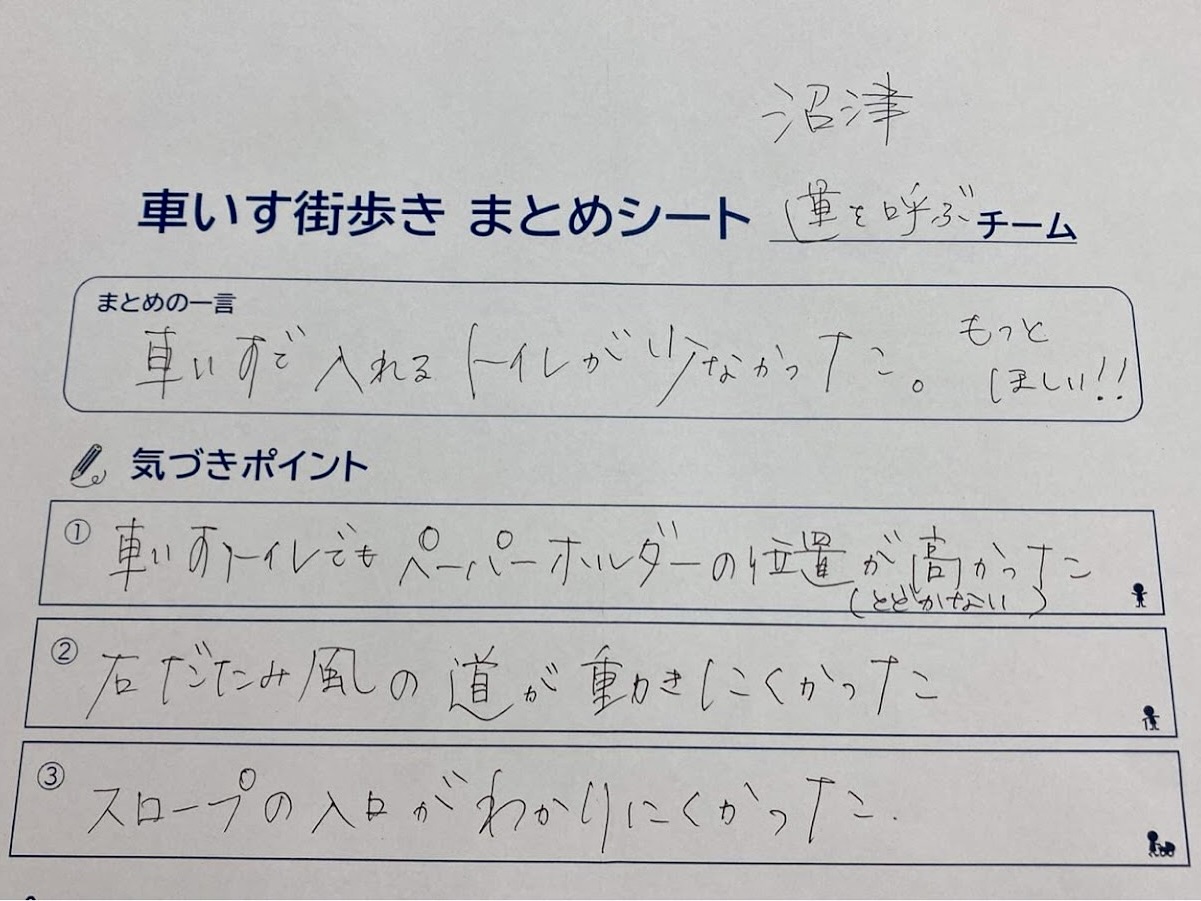 沼津
車いす街歩き まとめシート 運を呼ぶチーム
まとめの一言
車いすで入れるトイレが少なかった。 もっと
ほしい!!
気づきポイント
① 車いすトイレでも ペーパーホルダーの位置が高かった
(とどかない)
② 石だたみ風の道が動きにくかった
③ スロープの入口がわかりにくかった.